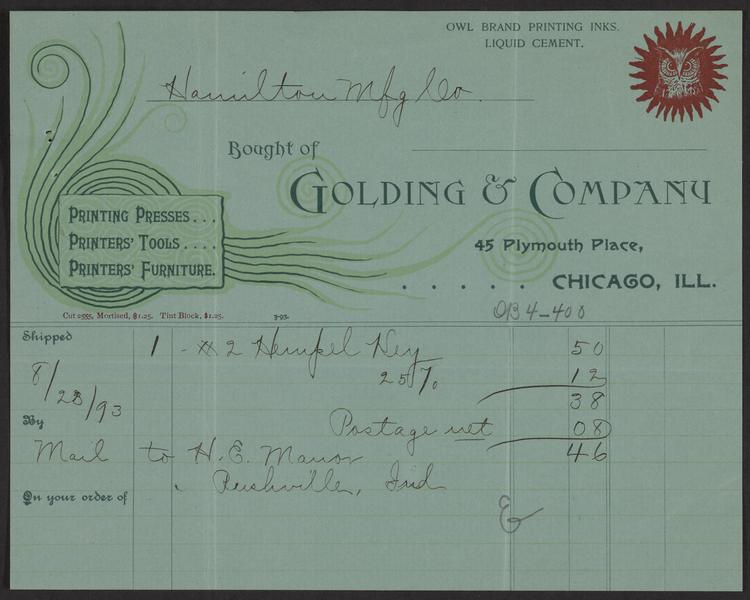 OWL BRAND PRINTING INKS.
LIQUID CEMENT.
Hamilton Mfg Co.
Bought of
GOLDING & COMPANY
PRINTING PRESSES...
PRINTERS' TOOLS....
PRINTERS' FURNITURE.
45 Plymouth Place,
. . . . . . CHICAGO, ILL.
Cut 2555, Mortised, $1.25. Tint Block, $1.25. 3-93.
OB4-400
Shipped
1 - #2 Hempel Key 50
8/28/93 25% 12
38
By Postage net 08
Mail to H. E. Manor 46
Rushville, Ind
On your order of